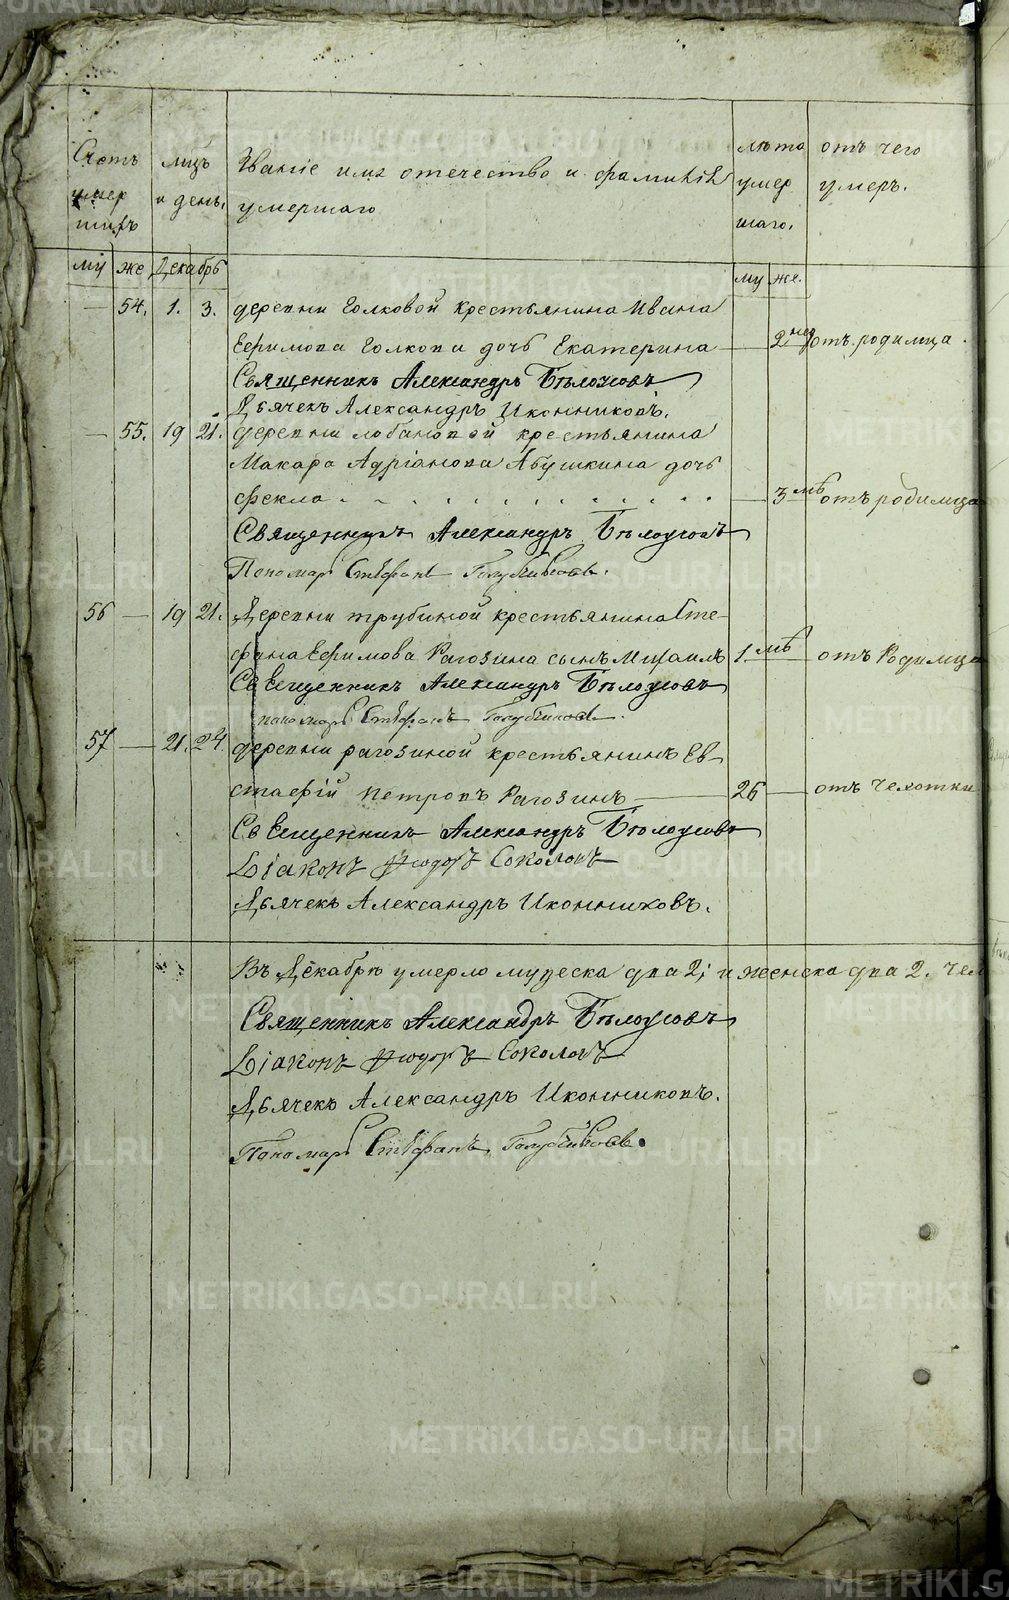 Счетъ умер шихъ
мцъ и день.
Званіе имя отечество и фамилія умершаго
лѣта умер шаго.
отъ чего умеръ.
му же Декабрь му же.
54. 1. 3. деревни Голковой крестьянина Ивана
Ефимова Голкова дочь Екатерина 2 нед отъ родимца.
Священникъ Александръ Бѣлоусовъ
Дьячекъ Александръ Иконниковъ.
55. 19 21. деревни лобановой крестьянина
Макара Адріанова Абушкина дочь
фекла 3 мѣ отъ родимца
Священникъ Александръ Бѣлоусовъ
Пономарь Стефанъ
56 19 21. Деревни трубиной крестьянина Сте-
фана Ефимова Рагозина сынъ Михаилъ 1 мѣ отъ Родимца
Священникъ Александръ Бѣлоусовъ
пономарь Стефанъ
57 21. 24. деревни рагозиной крестьянинъ Ев-
стафій петровъ Рагозинъ 26 отъ чехотки
Священникъ Александръ Бѣлоусовъ
Діаконъ Ѳеодоръ Соколовъ
Дьячекъ Александръ Иконниковъ.
Въ Декабрѣ умерло мужеска два 2; и женска два 2. чел
Священникъ Александръ Бѣлоусовъ
Діаконъ Ѳеодоръ Соколовъ
Дьячекъ Александръ Иконниковъ.
Пономарь Стефанъ
METRIKI.GASO-URAL.RU